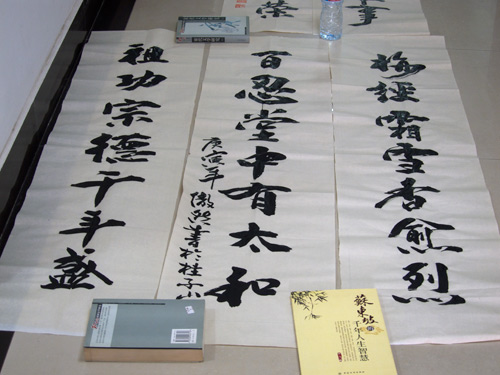 梅經霜雪香愈烈
百忍堂中有太和
庚寅年
書於桂子
祖功宗德千年盛
蘇東坡
的
千年人生智慧